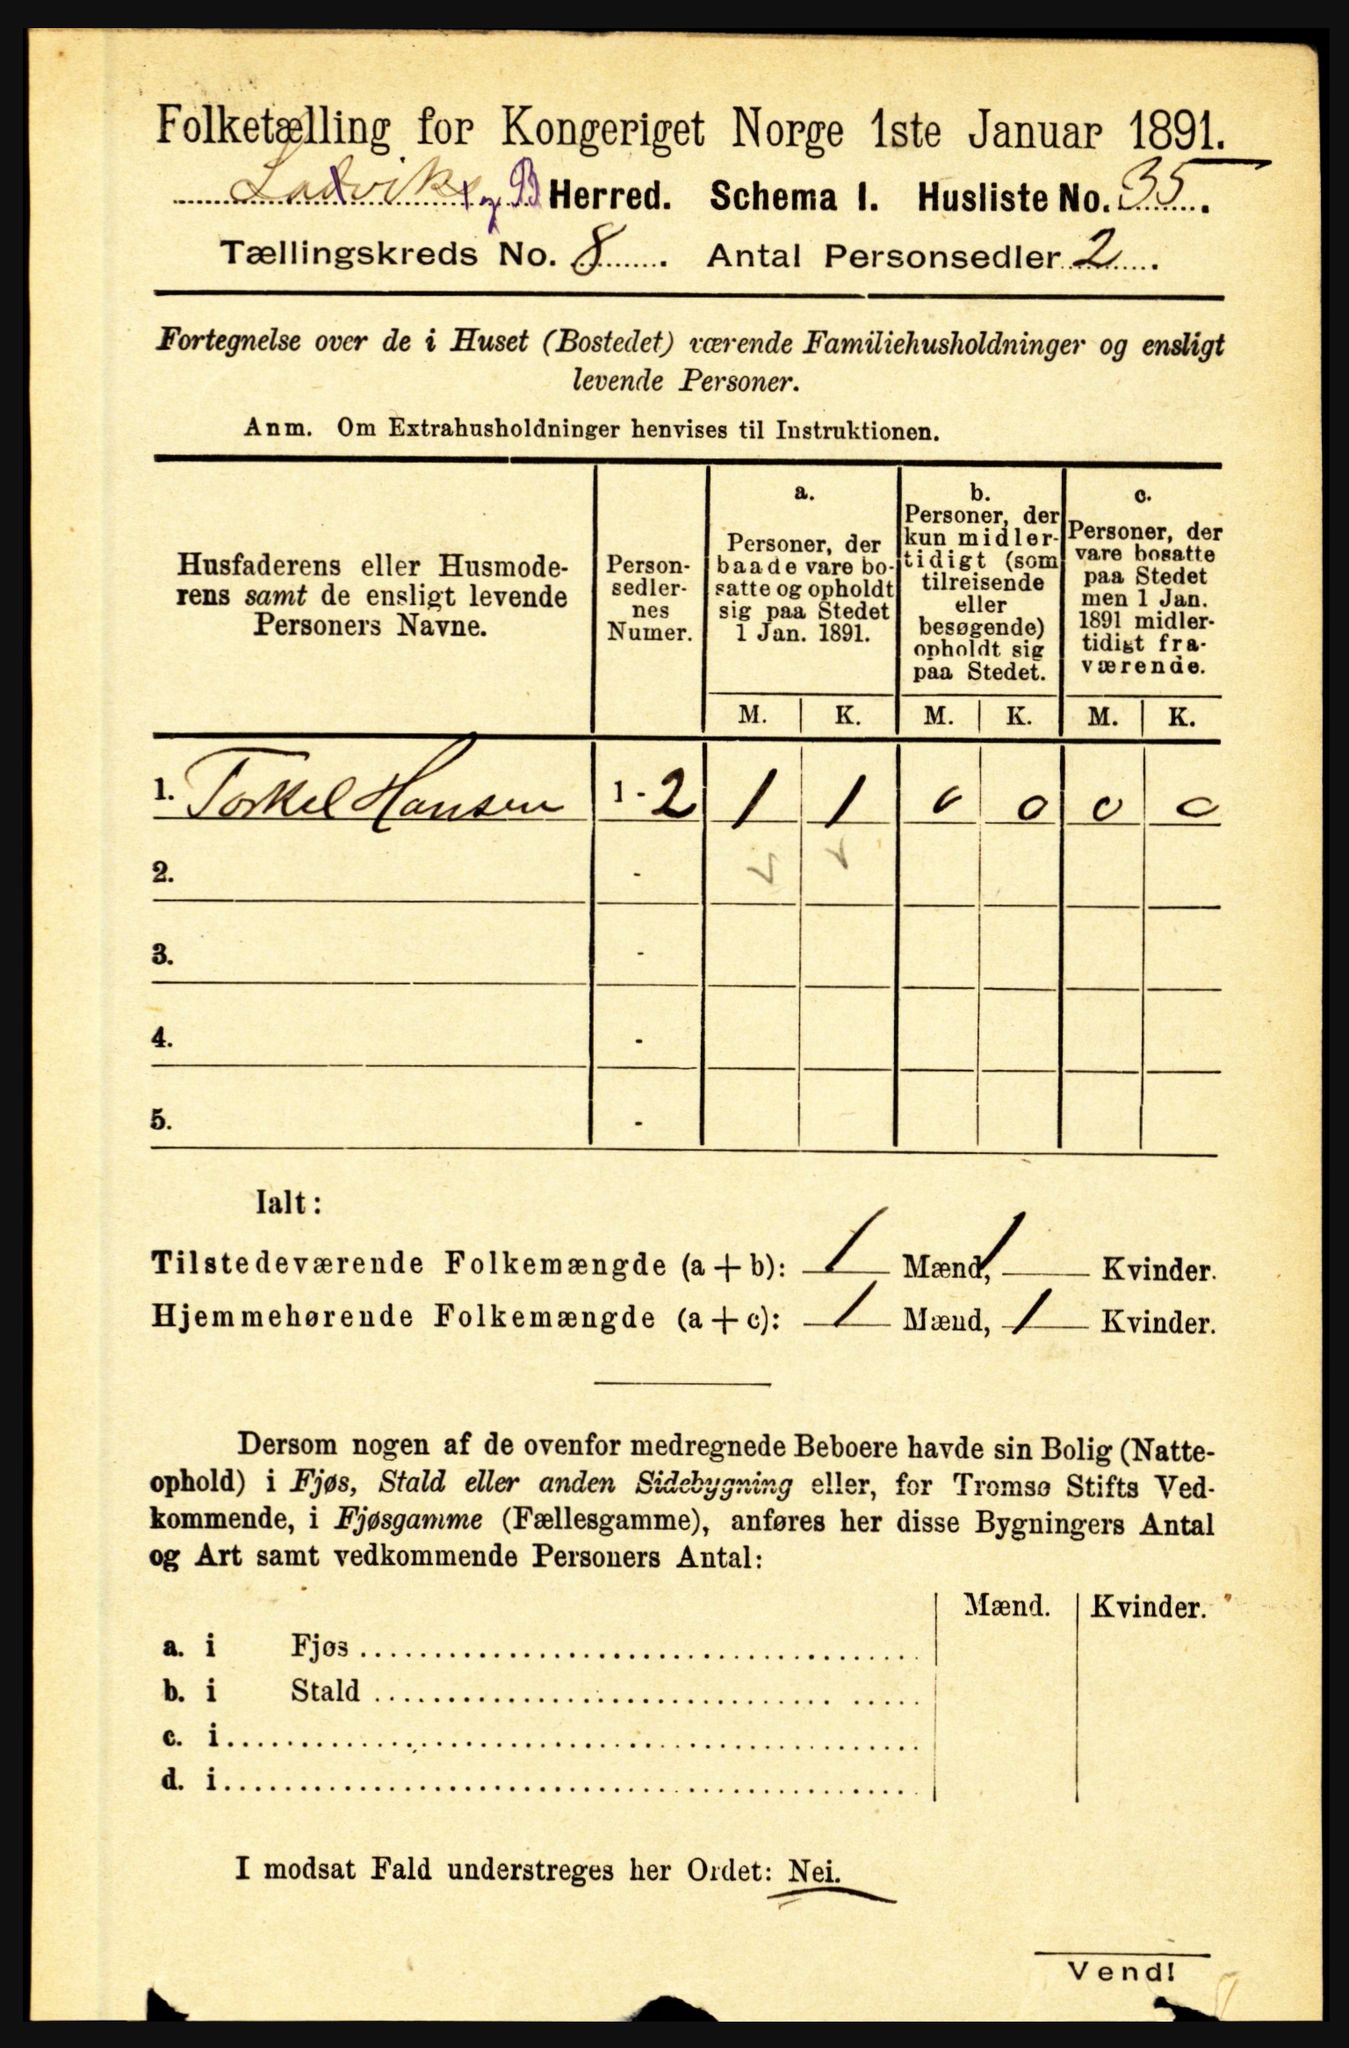 Folketælling for Kongeriget Norge 1ste Januar 1891.
Ladvik og B Herred. Schema I. Husliste No. 35.
Tællingskreds No. 8. Antal Personsedler 2.
Fortegnelse over de i Huset (Bostedet) værende Familiehusholdninger og ensligt
levende Personer.
Anm. Om Extrahusholdninger henvises til Instruktionen.
Husfaderens eller Husmode-
rens samt de ensligt levende
Personers Navne.
Person-
sedler-
nes
Numer.
a.
Personer, der
baade vare bo-
satte og opholdt
sig paa Stedet
1 Jan. 1891.
b.
Personer, der
kun midler-
tidigt (som
tilreisende
eller
besøgende)
opholdt sig
paa Stedet.
c.
Personer, der
vare bosatte
paa Stedet
men 1 Jan.
1891 midler-
tidigt fra-
værende.
M. K. M. K. M. K.
1. Torkel Hansen 1-2 1 1 0 0 0 0
2. -
3. -
4. -
5. -
Ialt:
Tilstedeværende Folkemængde (a + b): 1 Mænd, 1 Kvinder.
Hjemmehørende Folkemængde (a + c): 1 Mænd, 1 Kvinder.
Dersom nogen af de ovenfor medregnede Beboere havde sin Bolig (Natte-
ophold) i Fjøs, Stald eller anden Sidebygning eller, for Tromsø Stifts Ved-
kommende, i Fjøsgamme (Fællesgamme), anføres her disse Bygningers Antal
og Art samt vedkommende Personers Antal:
Mænd. Kvinder.
a. i Fjøs
b. i Stald
c. i
d. i
I modsat Fald understreges her Ordet: Nei.
Vend!